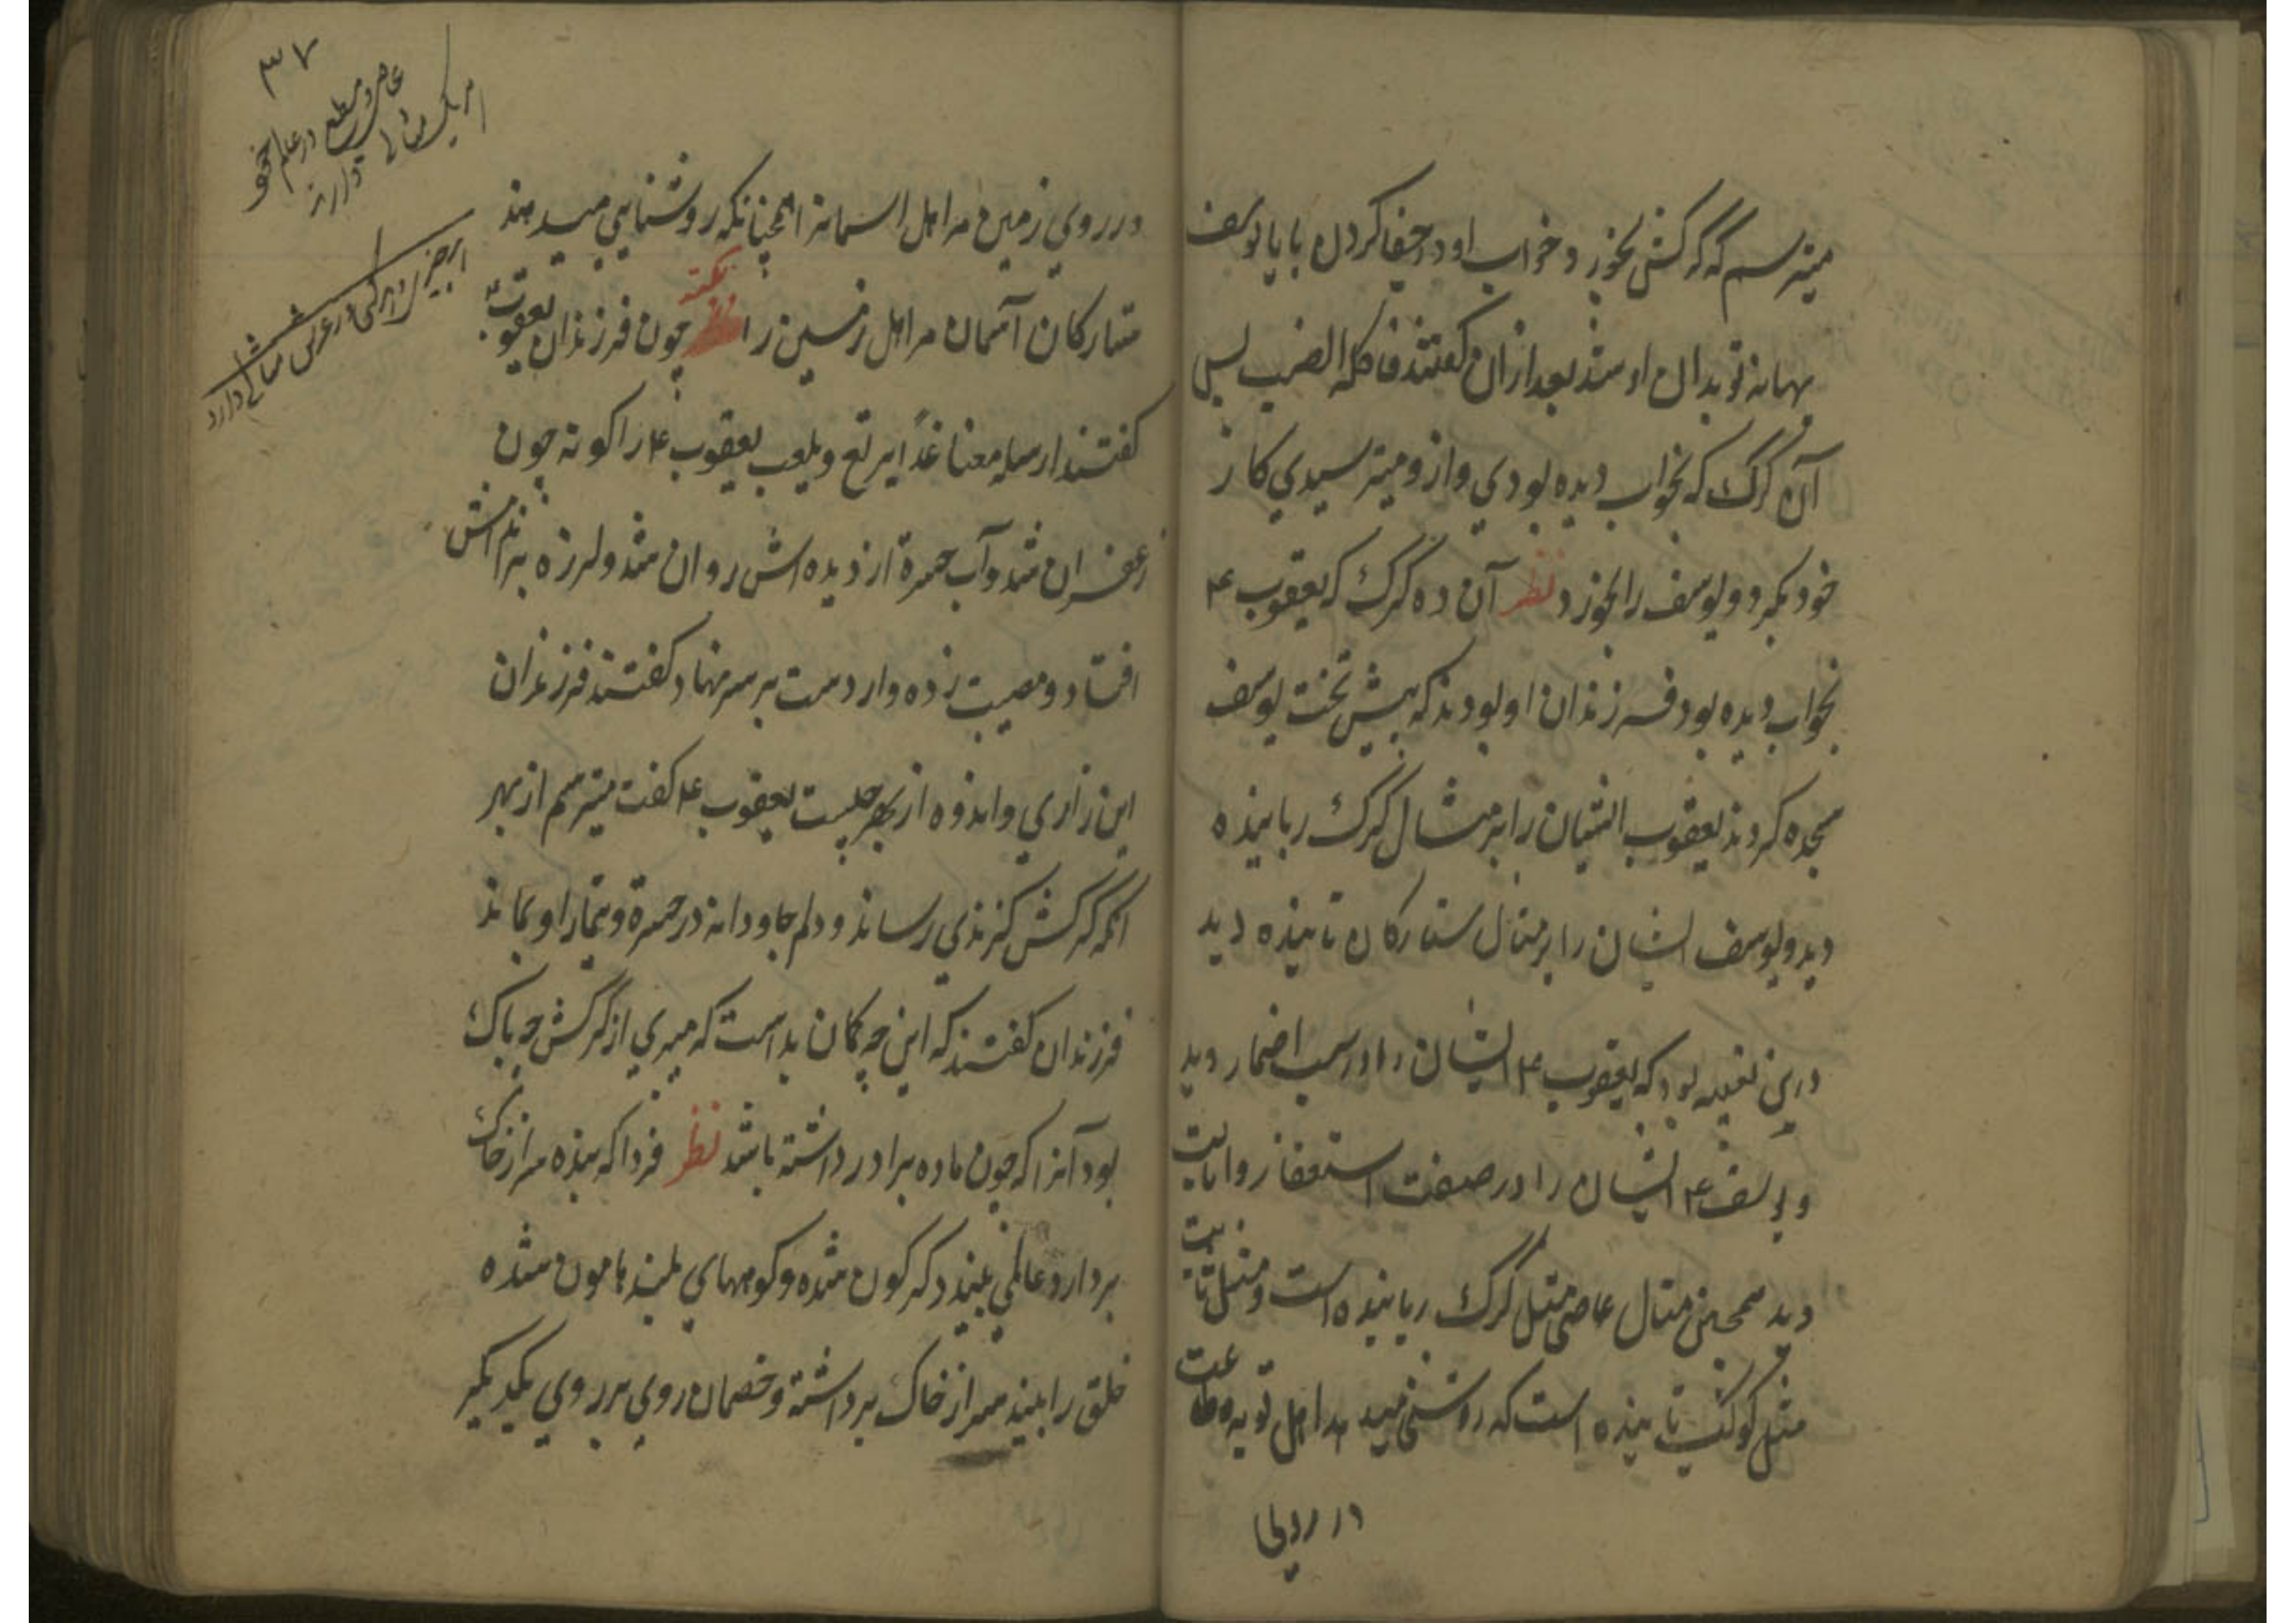 میترسم که گرگش بخورد و خواب او در جفا کردن با یوسف
بهانه تو بدان او شد بعد ازان گفتند فاکله الذیب پس
آن گرگ که بخواب دیده بودی و ازو میترسیدی کار
خود بکرد و یوسف را بخورد نظر آن ده گرگ که یعقوب ۴
بخواب دیده بود فرزندان او بودند که پیش تخت یوسف
سجده کردند یعقوب ایشان را بر مثال گرگ رباینده
دید و یوسف ایشان را بر مثال ستارکان تابنده دید
درین تعبیه بود که یعقوب ۴ ایشان را در اضمار دید
و یوسف ۴ ایشان را در صفت استغفار و انابت
دید همچنین مثال عاصی مثل گرگ رباینده است و مثل تایب
مثل کوکب تابنده است که روشنی میدهد اهل توبه و طاعت
در روی
۳۷
عاصی و مطیع در عالم خود
هر یک مثالی دارند
هر چیزی و هر کسی در عرش مثالی دارد
در روی زمین مر اهل آسمانرا همچنانکه روشنایی میدهند
ستارکان آسمان مر اهل زمین را نکته چون فرزندان یعقوب
گفتند ارسله معنا غدا یرتع و یلعب یعقوب ۴ را کونه چون
زعفران شد و آب حسرة از دیده اش روان شد و لرزه بر اندامش
افتاد و مصیبت زده وار دست بر سر نهاد گفتند فرزندان
این زاری و اندوه از بهر چیست یعقوب ۴ گفت میترسم از بهر
آنکه گرگش گزندی رساند و دلم جاودانه در حسرة و تیمار او بماند
فرزندان گفتند که این چه گمان بد است که میبری از گرگش چه باک
بود آنرا که چون ما ده برادر داشته باشد نظر فردا که بنده سر از خاک
بردارد عالمی بیند دگرگون شده و کوههای بلند هامون شده
خلق را بیند سر از خاک برداشته و خصمان روی بر روی یکدیگر